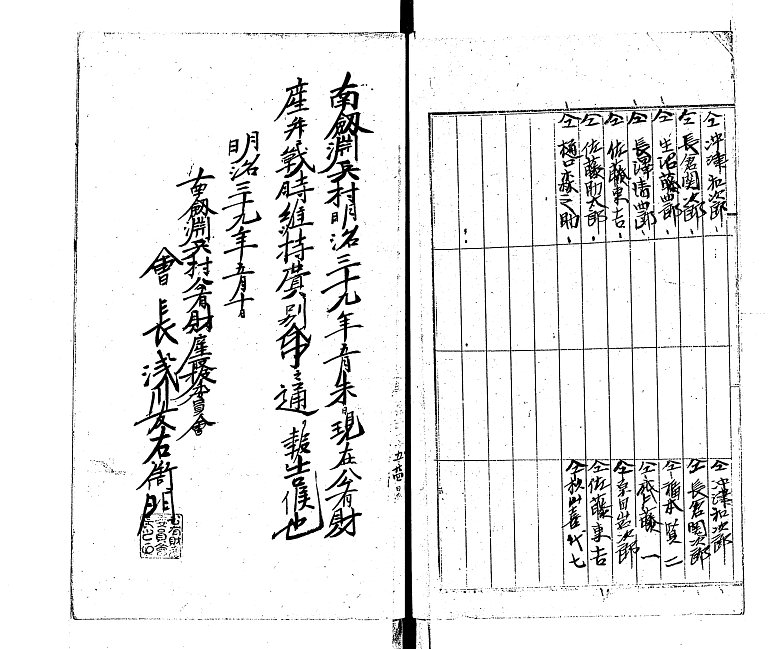 仝 沖津和次郎
仝 長倉関次郎
仝 生沼藤四郎
仝 長澤情四郎
仝 佐藤東吉
仝 佐藤助太郎
仝 樋口森之助
仝 沖津和次郎
仝 長倉関次郎
仝 福本賢二
仝 藤一
仝 岩次郎
仝 佐藤東吉
仝 秋山喜代七
南劔淵兵村明治三十九年五月末日現在公有財
産并戦時維持費別命之通報告候也
明治三十九年五月十日
南劔淵兵村公有財産取扱委員會
會長浅川友右衛門